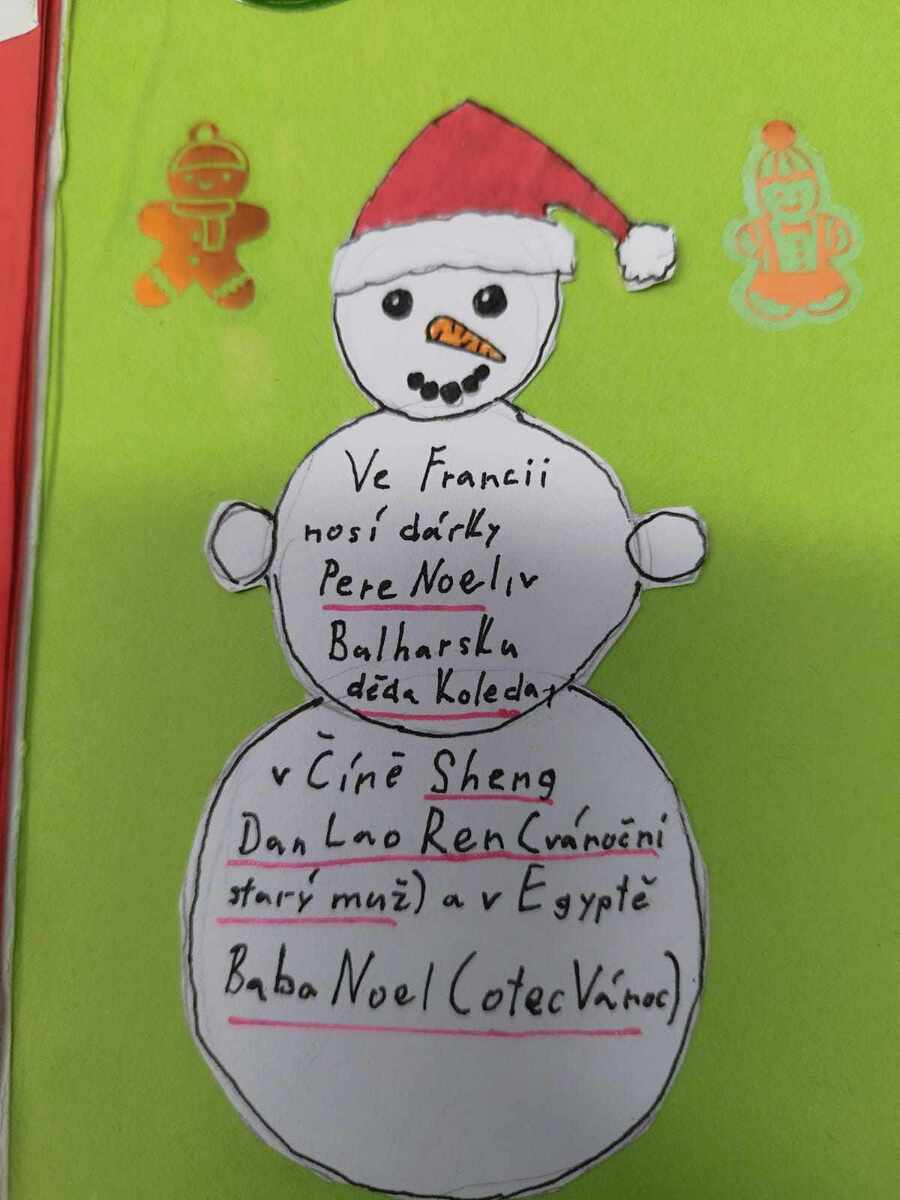 Ve Francii
nosí dárky
Pere Noel, v
Balharsku
děda Koleda,
v Číně Sheng
Dan Lao Ren (vánoční
starý muž) a v Egyptě
Baba Noel (otec Vánoc)